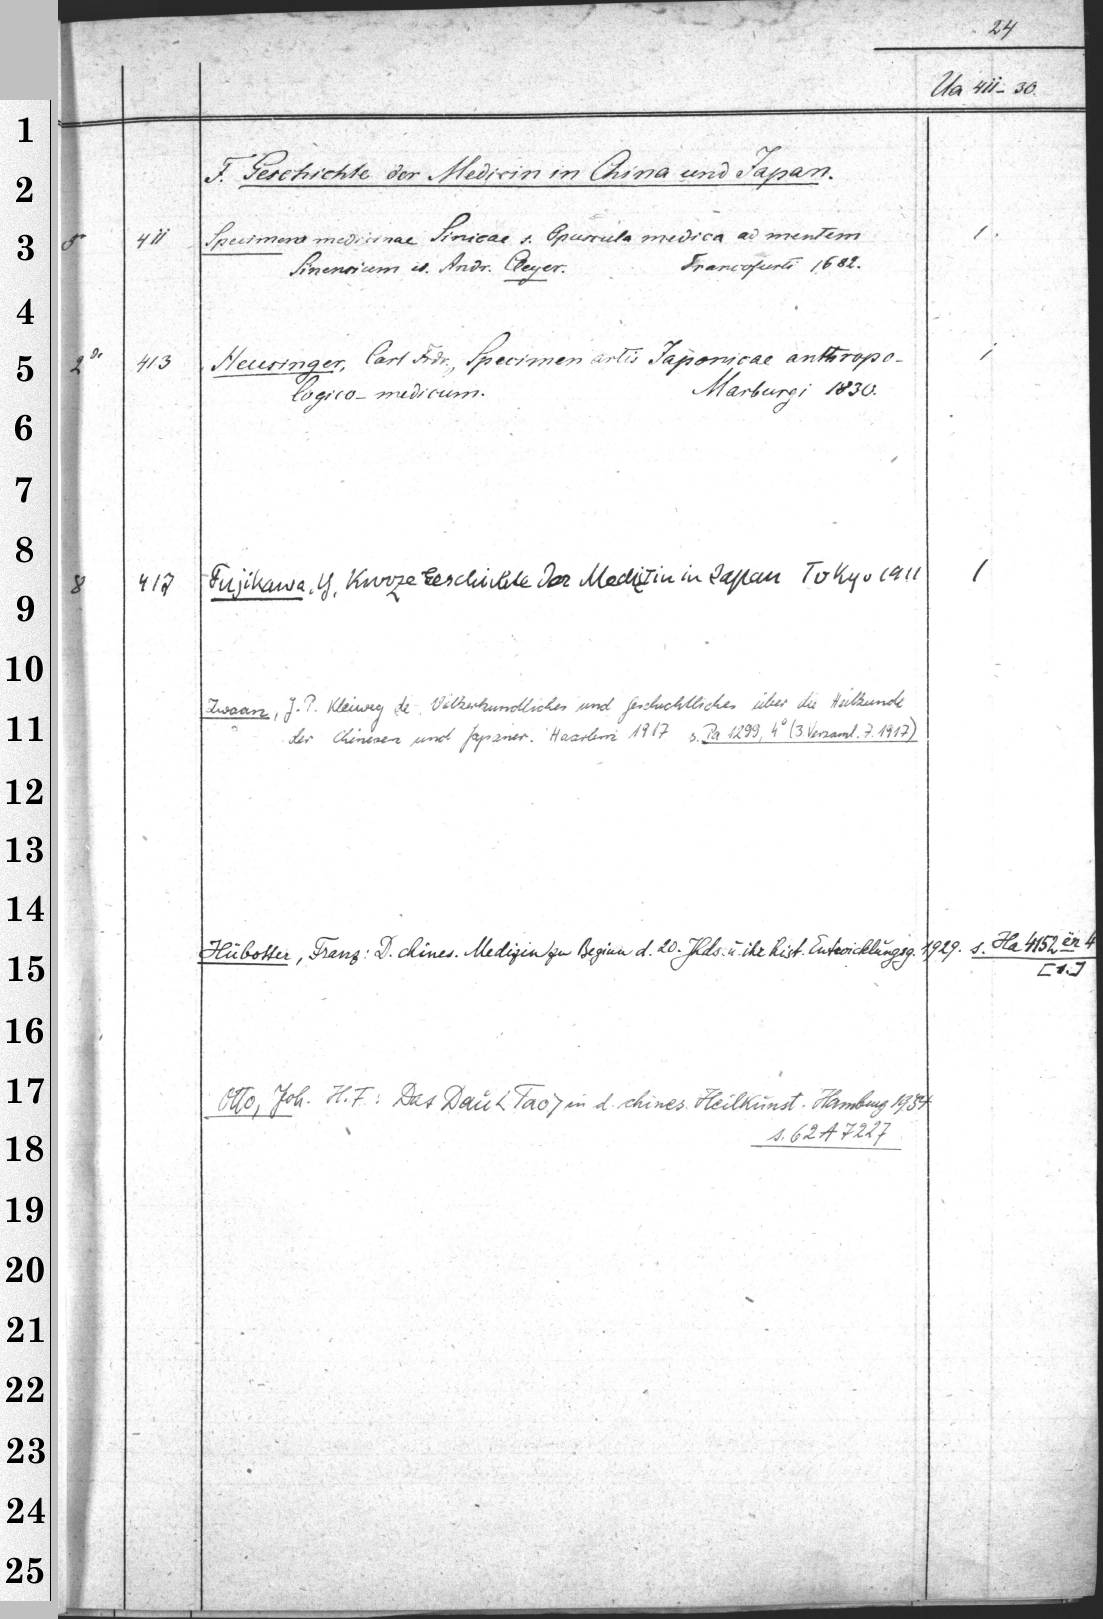 24
Ua 411-30.
1
F. Geschichte der Medicin in China und Japan.
2
3 411 Specimen medicinae Sinicae s. Opuscula medica ad mentem 1.
Sinensium ed. Andr. Cleyer. Francofurti 1682.
4
5 2° 413 Heusinger, Carl Frdr., Specimen artis Japonicae anthropo- 1
logico-medicum. Marburgi 1830.
6
7
8
8 417 Fujikawa, Y, Kurze Geschichte der Medizin in Japan Tokyo 1911 1
9
10
Zwaan, J. P. Kleiweg de Völkerkundliches und Geschichtliches über die Heilkunde
11
der Chinesen und Japaner. Haarlem 1917 s. Pa 1299, 4° (3 Verzaml. 7. 1917)
12
13
14
Hübotter, Franz: D. chines. Medizin zu Beginn d. 20. Jhds. ü ihr hist. Entwicklungsg. 1929. s. Ha 4152 in 4
15 [1.]
16
17 Otto, Joh. H. F.: Das Dau <Tao> in d. chines. Heilkunst. Hamburg 1954
s. 62 A 7227
18
19
20
21
22
23
24
25